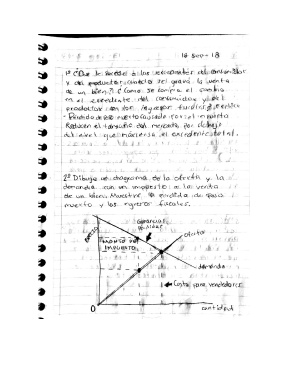 19 sep - 18
1º ¿Que le sucede a los excedentes del consumidor
y del productor, cuando se grava la venta
de un bien? ¿Como se compara el cambio
en el excedente del consumidor y del
productor con los ingresos fiscales, explica
- Perdida de peso muerto causado por el impuesto
Reducen el tamaño del mercado por debajo
del nivel que maximiza el excedente total.
2º Dibuja un diagrama de la oferta y la
demanda con un impuesto a la venta
de un bien. Muestre la perdida de peso
muerto y los ingresos fiscales.
Precio
Ganancias
Perdidas
Oferta
MONTO DEL
IMPUESTO
demanda
Costo para vendedores
0
cantidad